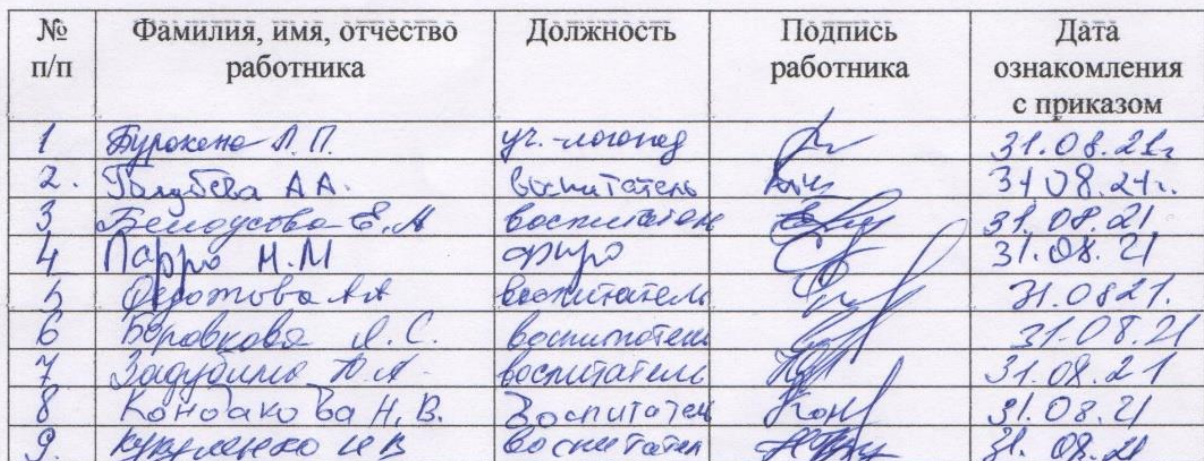 № п/п Фамилия, имя, отчество работника Должность Подпись работника Дата ознакомления с приказом
1 Л.П. уч.-логопед 31.08.21г
2. Голубева А А. воспитатель 31 08.21г.
3 Белоусова Е.А воспитатель 31.08.21
4 Парро Н.М физо 31.08.21
5 Федотова АА воспитатель 31.0821.
6 Боровкова Я.С. воспитатель 31.08.21
7 Ю.А. воспитатель 31.08.21
8 Кондакова Н.В. Воспитател 31.08.21
9. И В воспитател 31.08.21